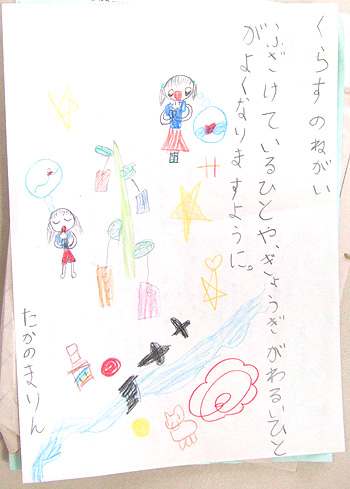 くらすのねがい
ふざけているひとや、ぎょうぎがわるいひと
がよくなりますように。
たがのまりん